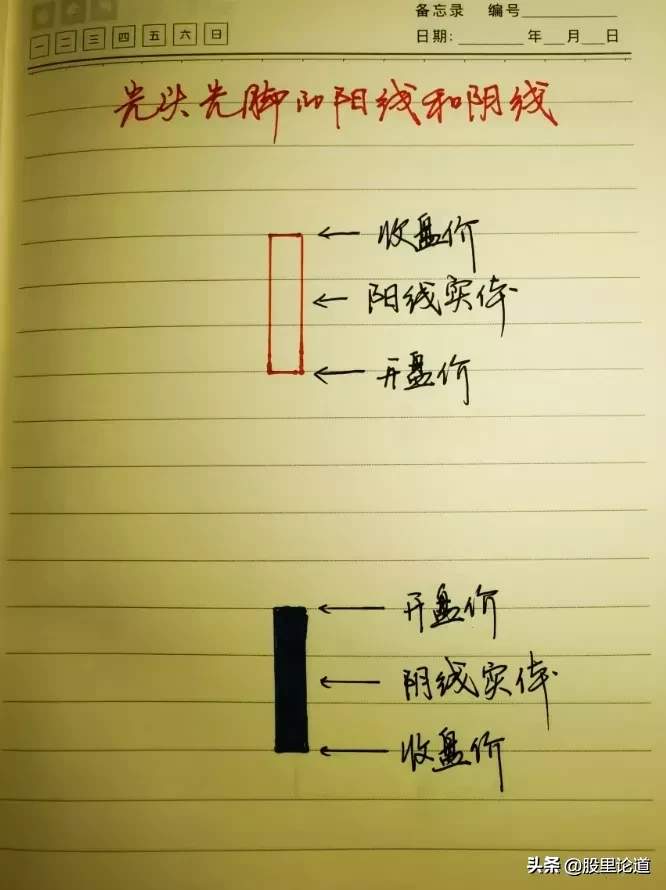 备忘录 编号
一 二 三 四 五 六 日
日期: 年 月 日
光头光脚的阳线和阴线
收盘价
阳线实体
开盘价
开盘价
阴线实体
收盘价
头条 @股里论道